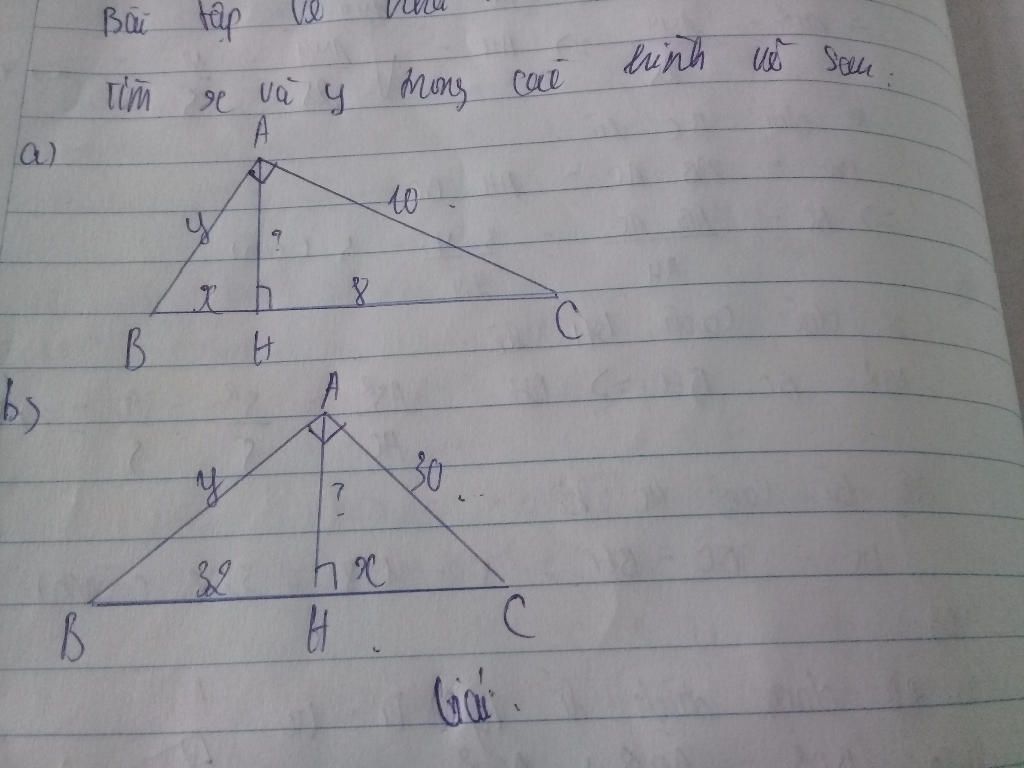 Bài tập về nhà
Tìm x và y trong các hình vẽ sau:
a)
A
y
10
?
x
8
B
H
C
b)
A
y
30
?
32
x
B
H
C
Giải